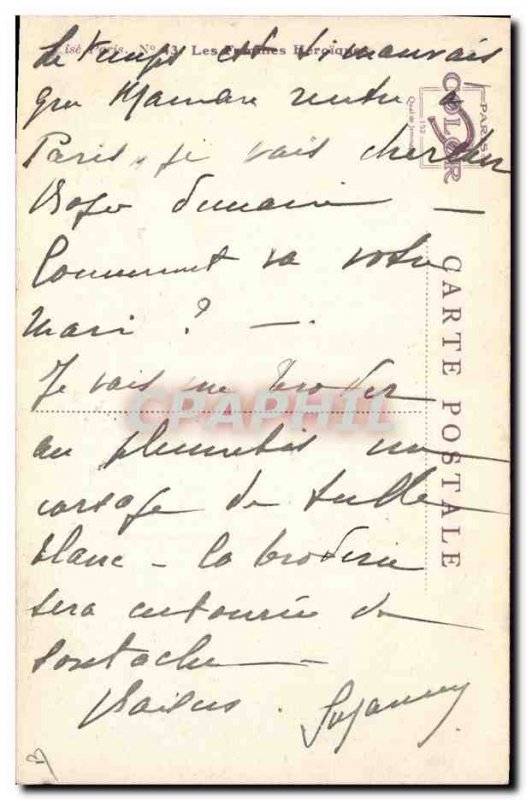 isé Paris. No 43 Les Femmes Héroïques
Le temps est si mauvais
que Maman rentre à
Paris, je vais chercher
demain —
Comment va votre
mari ? —.
Je vais me broder
au plumetis un
corsage de tulle
blanc – la broderie
sera entourée de
soutache —
Baisers . Suzanne
CARTE POSTALE
COLOR
PARIS
152
CPAPHIL